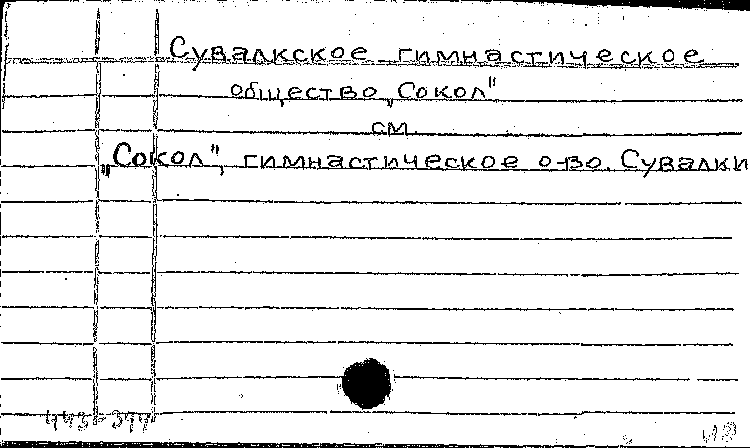 Сувалкское гимнастическое
общество „Сокол"
см
„Сокол", гимнастическое о-во. Сувалки